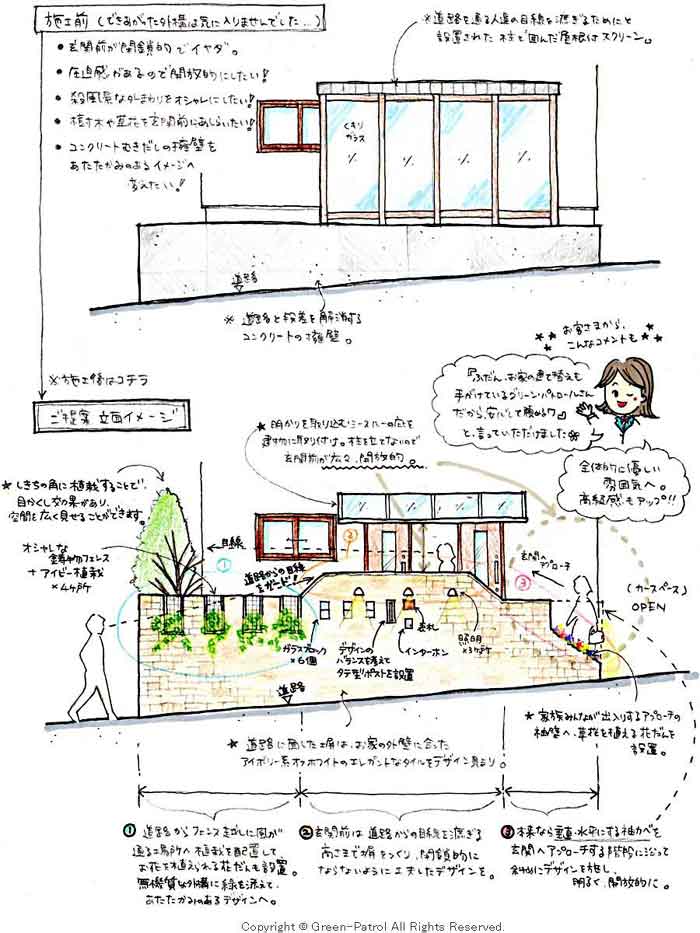 施工前（できあがった外構は気に入りませんでした...）
• 玄関前が閉鎖的でイヤダ。
• 圧迫感があるので開放的にしたい!
• 殺風景な外まわりをオシャレにしたい!
• 植木や草花を玄関前にあしらいたい!
• コンクリートむきだしの擁壁を
あたたかみのあるイメージへ
変えたい!!
※道路を通る人達の目線を遮ぎるためにと
設置された 柱で囲んだ屋根付スクリーン。
くもり
ガラス
道路
※ 道路と段差を解消する
コンクリートの擁壁。
お客さまから、
こんなコメントも
『ふだん、お家の建て替えも
手がけているグリーンパトロールさん
だから、安心して頼める♡』
と、言っていただけました
全体的に優しい
雰囲気へ。
高級感もアップ!!
※施工後はコチラ
ご提案 立面イメージ
★明かりを取り込むシースルーの庇を
建物に取り付け。柱を立てないので
玄関前が広々、開放的。
★しきちの角に植栽することで、
目かくし効果があり、
空間を広く見せることができます。
オシャレな
鋳物フェンス
+アイビー植栽
×4ヶ所
目線
①
②
③
道路からの目線
をガード!
玄関へ
アプローチ
(カースペース)
OPEN
ガラスブロック
×6個
デザインの
バランスを考えて
タテ型ポストを設置
表札
インターホン
照明
×3ヶ所
道路
★ 道路に面した塀は、お家の外壁に合った
アイボリー系オフホワイトのエレガントなタイルをデザイン貼り。
★家族みんなが出入りするアプローチの
袖壁へ、草花を植える花だんを
設置。
① 道路からフェンス越しに風が
通る場所へ植栽を配置して
お花を植えられる花だんも設置。
無機質な外構に緑を添えて、
あたたかみのあるデザインへ。
②玄関前は道路からの目線を遮ぎる
高さまで塀をつくり、閉鎖的に
ならないように工夫したデザインを。
③本来なら垂直・水平にする袖カベを
玄関へアプローチする階段に沿って
斜めにデザインを施し、
明るく、開放的に。
Copyright © Green-Patrol All Rights Reserved.